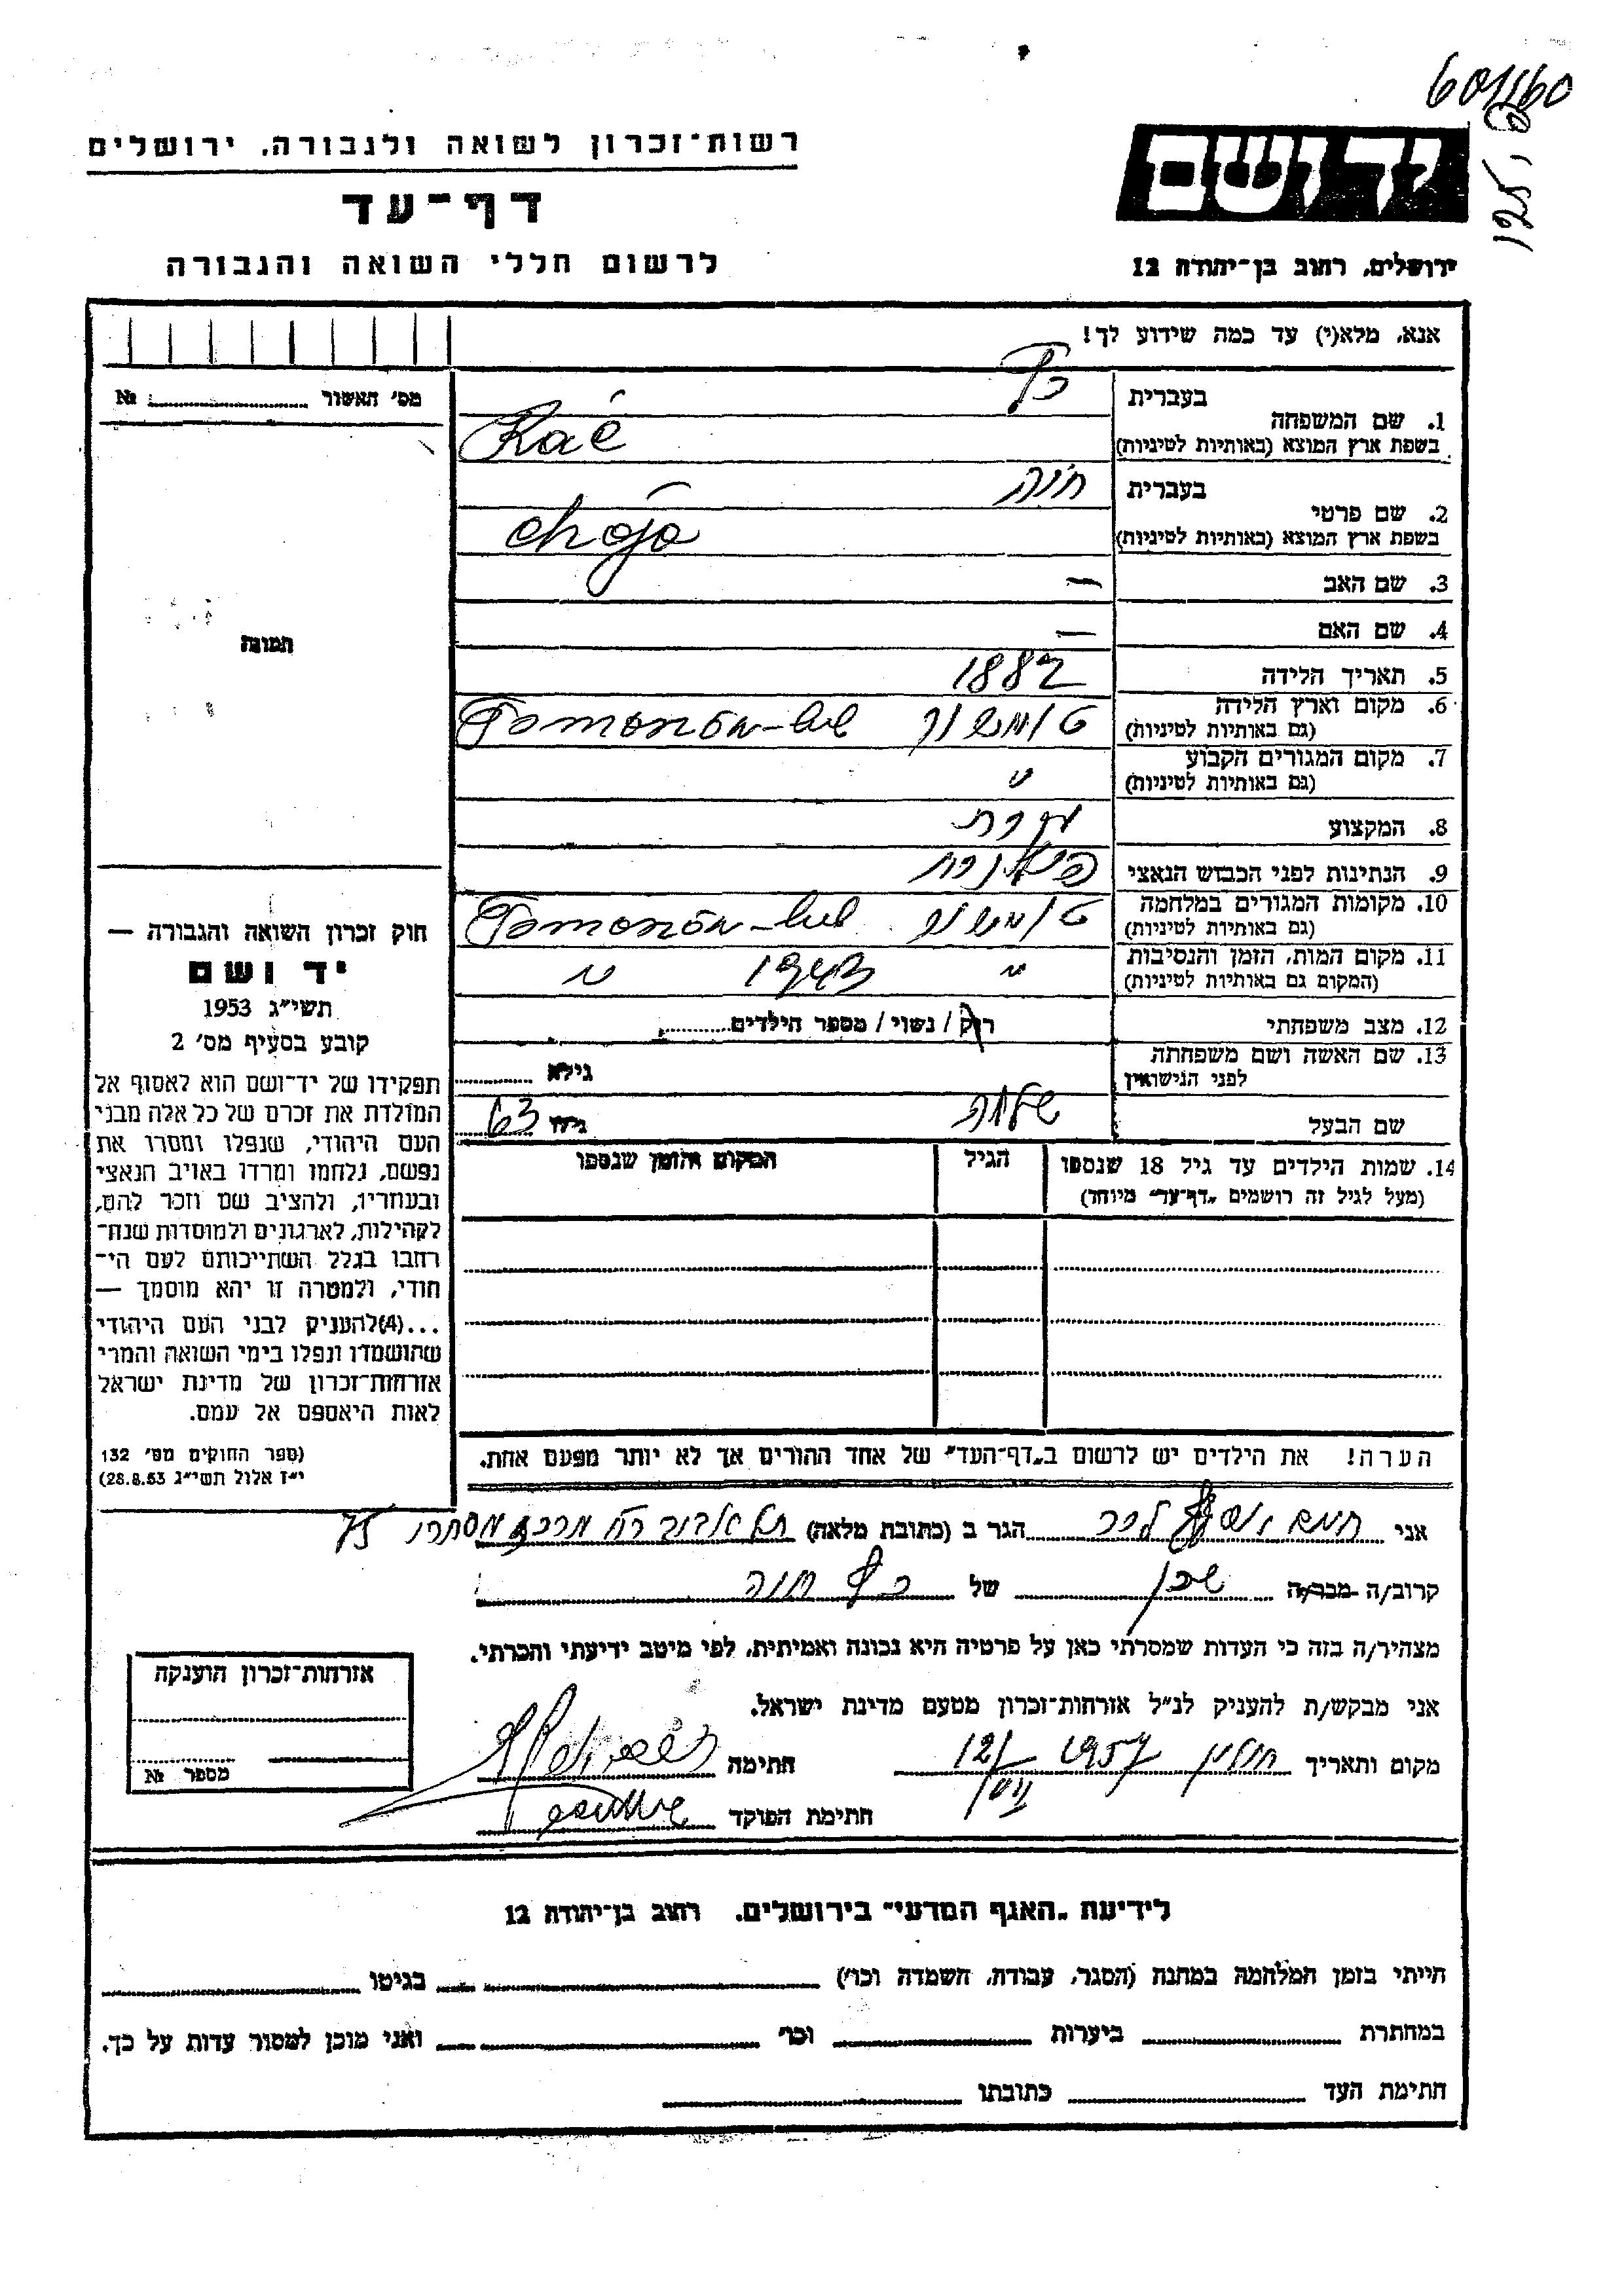 601160
125
רשות־זכרון לשואה ולגבורה, ירושלים
דף־עד
לרשום חללי השואה והגבורה
יד ושם
ירושלים, רחוב בן־יהודה 12
אנא, מלא(י) עד כמה שידוע לך!
מס׳ האשור № 
תמונה
1. שם המשפחה
בעברית כץ
בשפת ארץ המוצא (באותיות לטיניות) Kac
2. שם פרטי
בעברית חיה
בשפת ארץ המוצא (באותיות לטיניות) chaja
3. שם האב —
4. שם האם —
5. תאריך הלידה 1882
6. מקום וארץ הלידה
(גם באותיות לטיניות) Tomaszów-lub
7. מקום המגורים הקבוע
(גם באותיות לטיניות) "
8. המקצוע
9. הנתינות לפני הכבוש הנאצי פולנית
10. מקומות המגורים במלחמה
(גם באותיות לטיניות) Tomaszów-lub
11. מקום המות, הזמן והנסיבות
(המקום גם באותיות לטיניות) " 1943 "
12. מצב משפחתי רוק / נשוי / מספר הילדים
13. שם האשה ושם משפחתה
לפני הנישואין גילא
שם הבעל שלמה גילו 63
14. שמות הילדים עד גיל 18 שנספו הגיל המקום והזמן שנספו
(מעל לגיל זה רושמים „דף־עד״ מיוחד)
חוק זכרון השואה והגבורה —
יד ושם
תשי״ג 1953
קובע בסעיף מס׳ 2
תפקידו של יד־ושם הוא לאסוף אל
המולדת את זכרם של כל אלה מבני
העם היהודי, שנפלו ומסרו את
נפשם, נלחמו ומרדו באויב הנאצי
ובעוזריו, ולהציב שם וזכר להם,
לקהילות, לארגונים ולמוסדות שנח־
רחבו בגלל השתייכותם לעם הי־
הודי, ולמטרה זו יהא מוסמך —
...(4)להעניק לבני העם היהודי
שהושמדו ונפלו בימי השואה והמרי
אזרחות־זכרון של מדינת ישראל
לאות היאספם אל עמם.
(ספר החוקים מס׳ 132
י״ז אלול תשי״ג 28.8.53)
הערה! את הילדים יש לרשום ב„דף־העד״ של אחד ההורים אך לא יותר מפעם אחת.
אני הגר ב (כתובת מלאה) תל אביב רח 75
קרוב/ה מכר/ה שכן של כץ חיה
מצהיר/ה בזה כי העדות שמסרתי כאן על פרטיה היא נכונה ואמיתית, לפי מיטב ידיעתי והכרתי.
אני מבקש/ת להעניק לנ״ל אזרחות־זכרון מטעם מדינת ישראל.
מקום ותאריך חולון 1957 12/VIII חתימה
חתימת הפוקד
אזרחות־זכרון הוענקה
מספר №
לידיעת „האגף המדעי״ בירושלים, רחוב בן־יהודה 12
הייתי בזמן המלחמה במחנה (הסגר, עבודה, השמדה וכו׳) בגיטו
במחתרת ביערות וכו׳ ואני מוכן למסור עדות על כך.
חתימת העד כתובתו